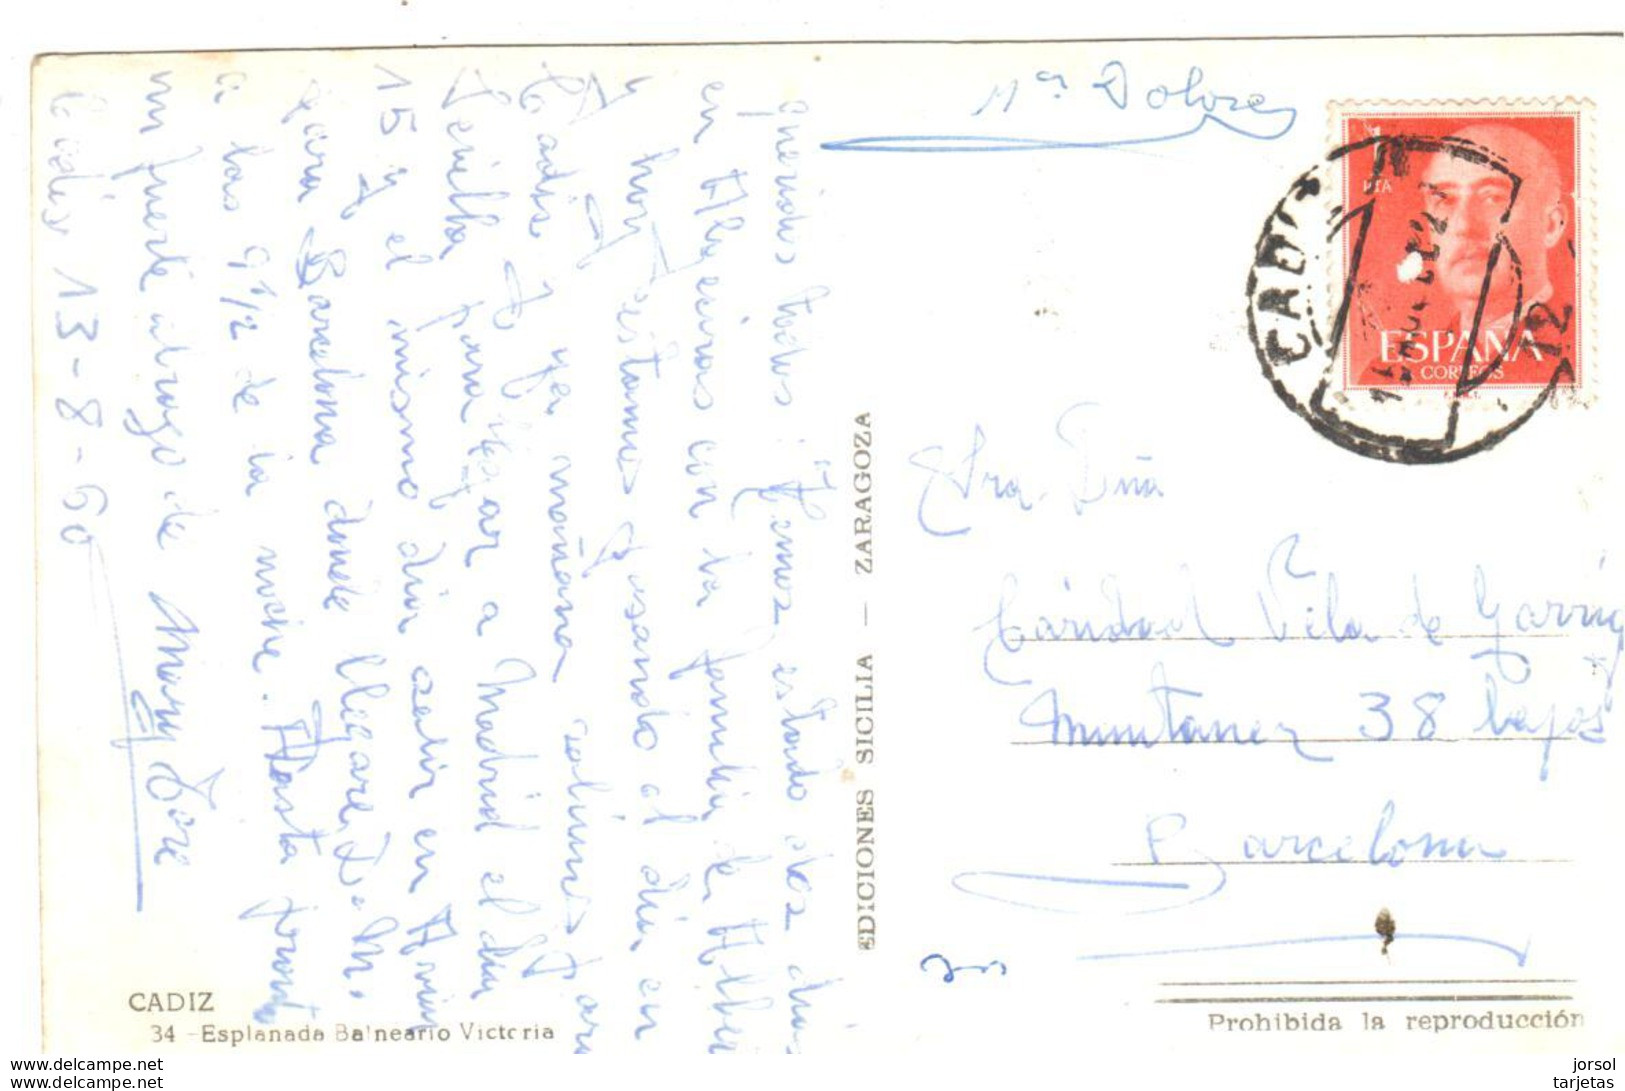 Mª Dolores
1
PTA
ESPAÑA
CORREOS
F.N.M.T.
CADIZ
12
queridos todos: Hemos estado dos dias
en Algeciras con la familia de Alber
y hoy estamos pasando el dia en
Cadiz y ya mañana salimos para
Sevilla para llegar a Madrid el dia
15 y el mismo dia salir en Avion
para Barcelona donde llegare D. M.
a las 9 1/2 de la noche. Hasta pronto
un fuerte abrazo de Mary Dore
Cadiz 13-8-60
EDICIONES SICILIA — ZARAGOZA
Sra. Dña
Caridad Vila de Garrig
Muntaner 38 bajos
Barcelona
CADIZ
34 - Esplanada Balneario Victoria
Prohibida la reproducción
https://www.delcampe.net
jorsol
tarjetas